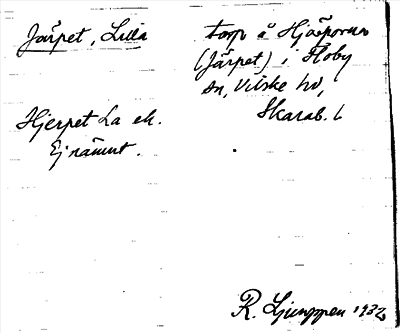 Järpet, Lilla
torp å Hjäsporeur
(Järpet) i Floby
sn, Vilske hd,
Skarab. l
Hjerpet La ek.
Ej nämnt.
R. Ljunggren 1932